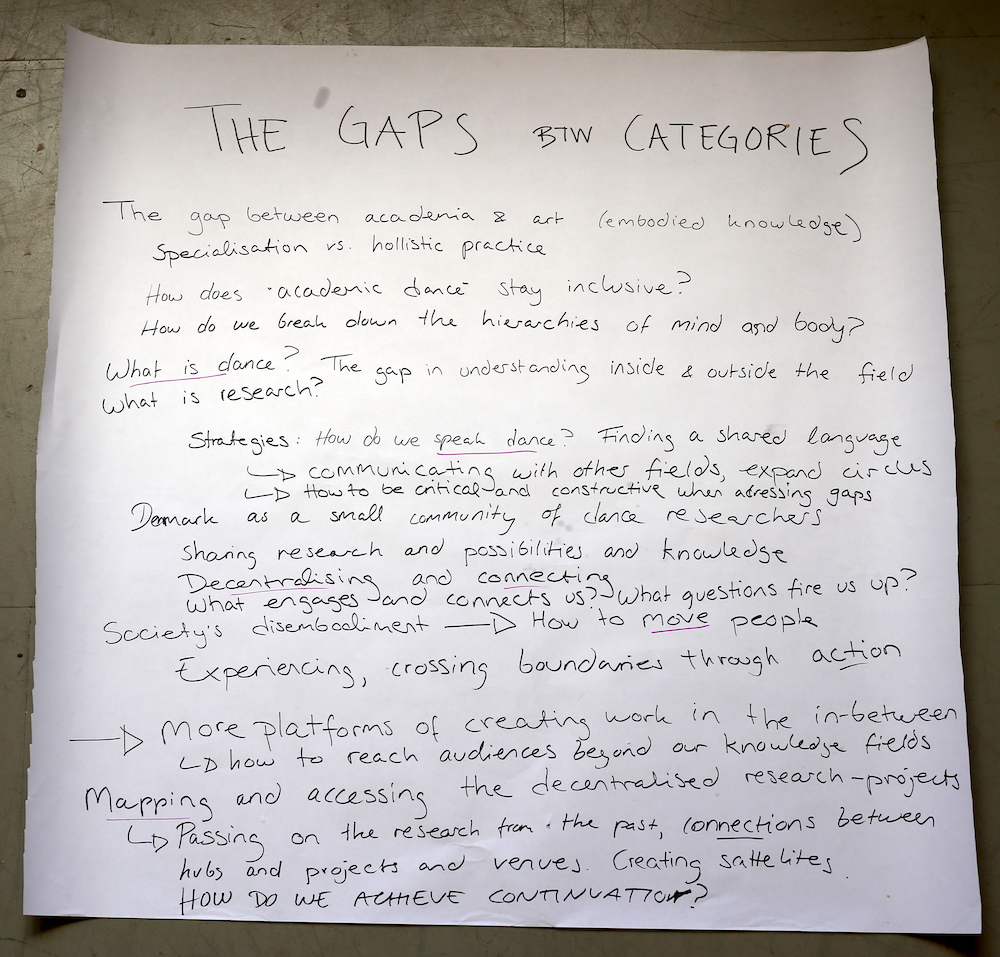 THE GAPS BTW CATEGORIES
The gap between academia & art (embodied knowledge)
Specialisation vs. hollistic practice
How does "academic dance" stay inclusive?
How do we break down the hierarchies of mind and body?
What is dance? The gap in understanding inside & outside the field
What is research?
Strategies: How do we speak dance? Finding a shared language
↳ communicating with other fields, expand circles
↳ How to be critical and constructive when adressing gaps
Denmark as a small community of dance researchers
Sharing research and possibilities and knowledge
Decentralising and connecting
What engages and connects us? What questions fire us up?
Society's disembodiment → How to move people
Experiencing, crossing boundaries through action
→ More platforms of creating work in the in-between
↳ how to reach audiences beyond our knowledge fields
Mapping and accessing the decentralised research-projects
↳ Passing on the research from the past, connections between
hubs and projects and venues. Creating sattelites.
HOW DO WE ACHIEVE CONTINUATION?